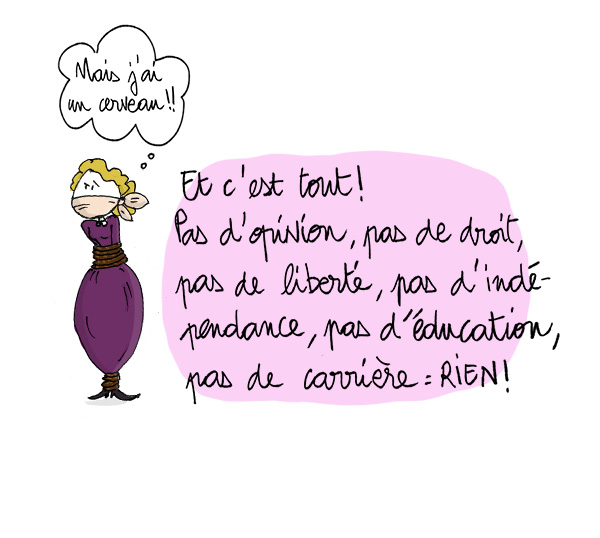 Mais j'ai
un cerveau!!
Et c'est tout!
Pas d'opinion, pas de droit,
pas de liberté, pas d'indé-
pendance, pas d'éducation,
pas de carrière = RIEN!